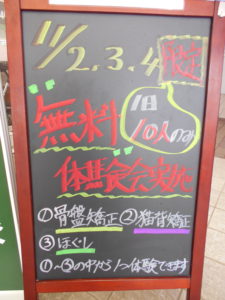 11/2.3.4 限定
無料 1日10人のみ
体験会実施
①骨盤矯正 ②猫背矯正
③ほぐし
①~③の中から1つ体験できます